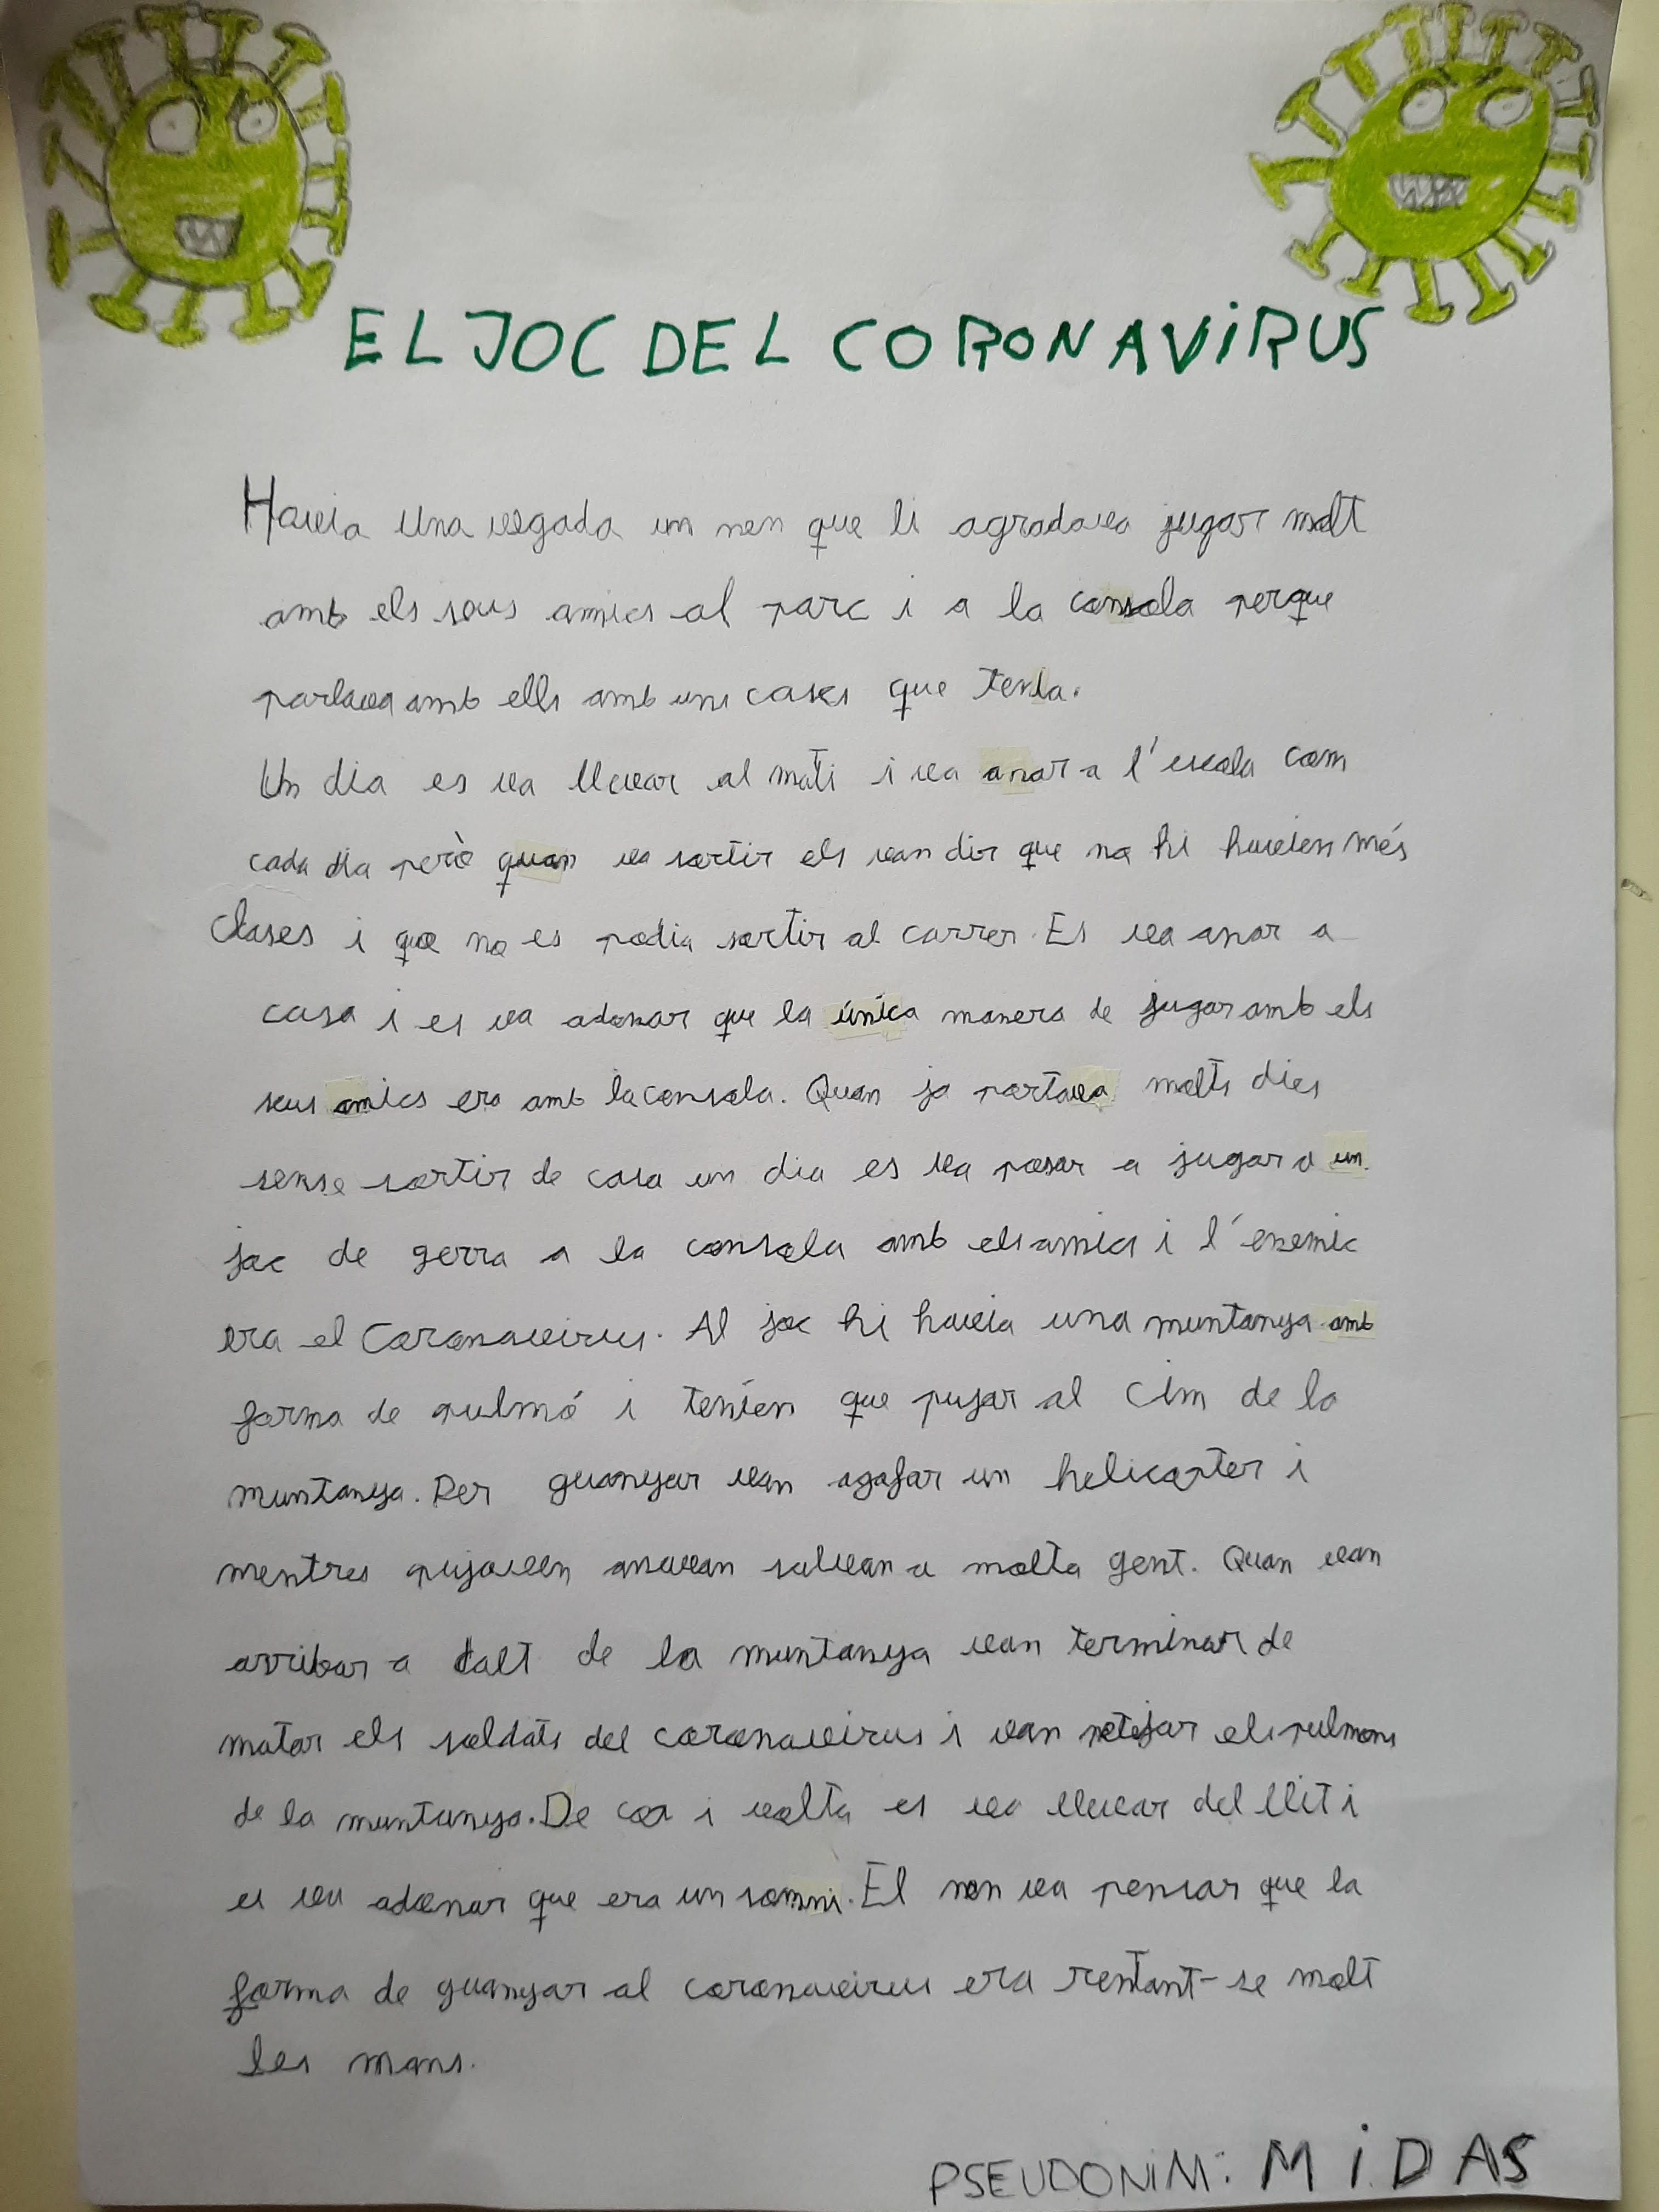 EL JOC DEL CORONAVIRUS
Havia una vegada un nen que li agradava jugar molt
amb els seus amics al parc i a la consola perque
parlava amb ells amb uns cascs que tenia.
Un dia es va llevar al mati i va anar a l'escola com
cada dia però quan va sortir els van dir que no hi havien més
Clases i que no es podia sortir al carrer. Es va anar a
casa i es va adonar que la única manera de jugar amb els
seus amics era amb la consola. Quan ja portava molts dies
sense sortir de casa un dia es va posar a jugar a un
joc de gerra a la consola amb els amics i l'enemic
era el Coronavirus. Al joc hi havia una muntanya amb
forma de pulmó i tenien que pujar al cim de la
muntanya. Per guanyar van agafar un helicopter i
mentres pujaven anavan salvan a molta gent. Quan van
arribar a dalt de la muntanya van terminar de
matar els soldats del coronavirus i van netejar els pulmons
de la muntanya. De cop i volta es va llevar del llit i
es va adonar que era un somni. El nen va pensar que la
forma de guanyar al coronavirus era rentant-se molt
les mans.
PSEUDONIM: MiDAS